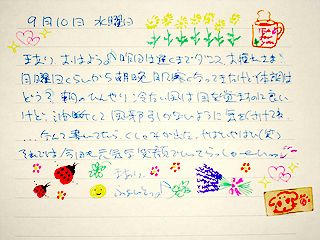 9月10日 水曜日
まあり、おはよう♪昨日は遅くまでダンス、お疲れさま!
日曜日くらいから朝晩
きたけど体調は
どう? 朝のひんやり冷たい風は目を覚ますのに良い
けど、油断して風邪引かないように気を付けてね
...なんて書いてたら、くしゃみが出た。やばいやばい(笑)
それでは今日も元気で笑顔でいってらっしゃーい
まあり